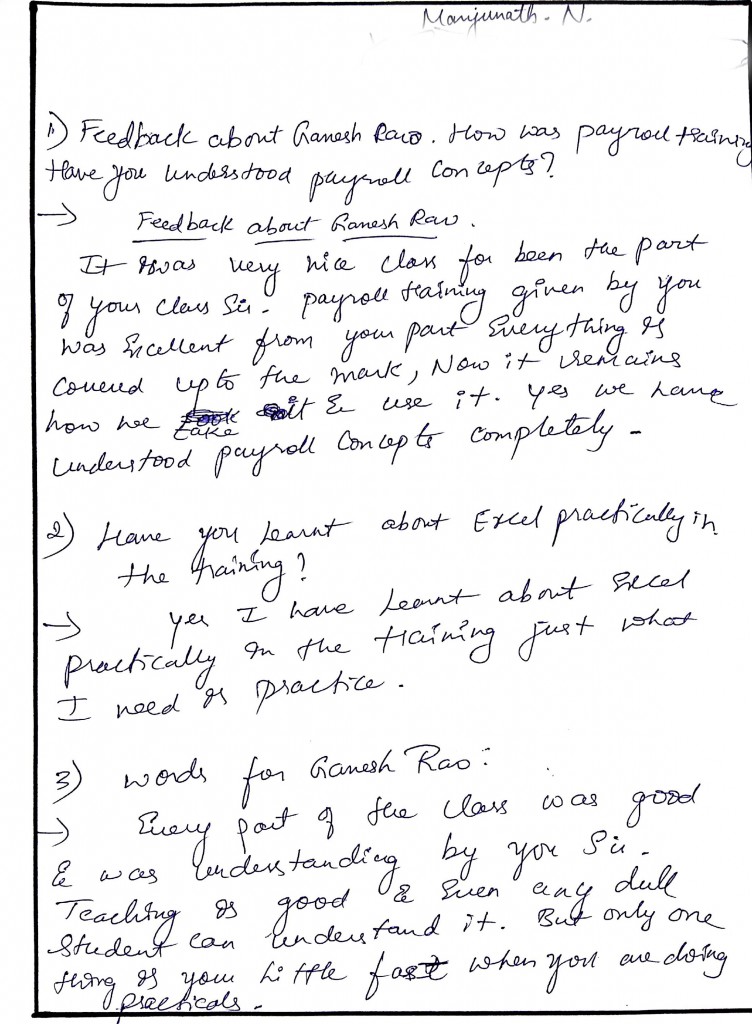 Manjunath. N.
1) Feedback about Ganesh Rao. How was payroll training
Have you understood payroll concepts?
→ Feedback about Ganesh Rao.
It was very nice class for been the part
of your class Sir. payroll training given by you
was Excellent from your part Everything is
covered upto the mark, Now it remains
how we take it & use it. yes we have
understood payroll concepts completely -
2) Have you Learnt about Excel practically in
the training?
→ yes I have Learnt about Excel
practically in the training just what
I need is practice.
3) words for Ganesh Rao:
→ Every part of the class was good
& was understanding by you Sir.
Teaching is good & Even any dull
Student can understand it. But only one
thing is your Little fast when you are doing
practicals.